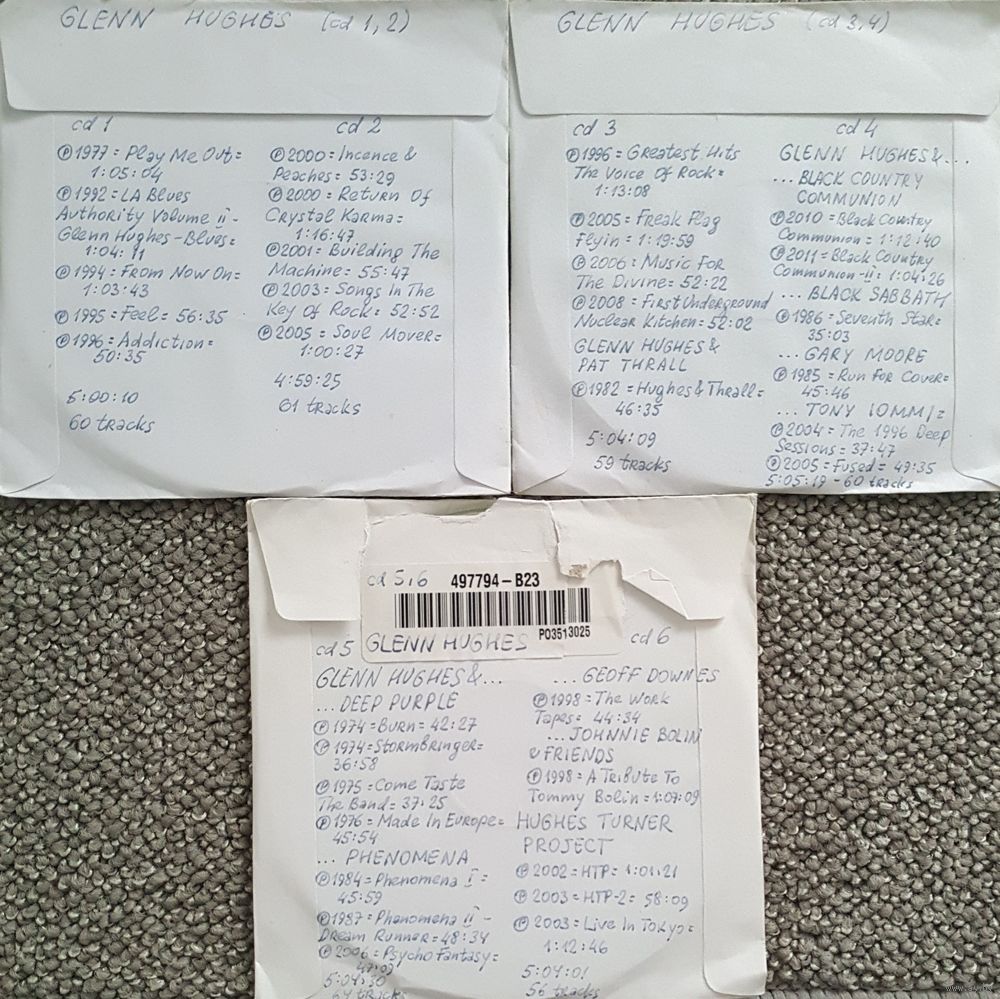 GLENN HUGHES (cd 1, 2)
cd 1
Ⓟ1977 = Play Me Out =
1:05:04
Ⓟ1992 = LA Blues
Authority Volume II -
Glenn Hughes - Blues =
1:04:11
Ⓟ1994 = From Now On =
1:03:43
Ⓟ1995 = Feel = 56:35
Ⓟ1996 = Addiction =
50:35
5:00:10
60 tracks
cd 2
Ⓟ2000 = Incence &
Peaches = 53:29
Ⓟ2000 = Return Of
Crystal Karma =
1:16:47
Ⓟ2001 = Building The
Machine = 55:47
Ⓟ2003 = Songs In The
Key Of Rock = 52:52
Ⓟ2005 = Soul Mover =
1:00:27
4:59:25
61 tracks
GLENN HUGHES (cd 3,4)
cd 3
Ⓟ1996 = Greatest Hits
The Voice Of Rock =
1:13:08
Ⓟ2005 = Freak Flag
Flyin = 1:19:59
Ⓟ2006 = Music For
The Divine = 52:22
Ⓟ2008 = First Underground
Nuclear Kitchen = 52:02
GLENN HUGHES &
PAT THRALL
Ⓟ1982 = Hughes & Thrall =
46:35
5:04:09
59 tracks
cd 4
GLENN HUGHES & ...
... BLACK COUNTRY
COMMUNION
Ⓟ2010 = Black Country
Communion = 1:12:40
Ⓟ2011 = Black Country
Communion - II = 1:04:26
... BLACK SABBATH
Ⓟ1986 = Seventh Star =
35:03
... GARY MOORE
Ⓟ1985 = Run For Cover =
45:46
... TONY IOMMI =
Ⓟ2004 = The 1996 Deep
Sessions = 37:47
Ⓟ2005 = Fused = 49:35
5:05:19 - 60 tracks
cd 5,6 497794-B23
PO3513025
GLENN HUGHES
cd 5
GLENN HUGHES & ...
... DEEP PURPLE
Ⓟ1974 = Burn = 42:27
Ⓟ1974 = Stormbringer =
36:58
Ⓟ1975 = Come Taste
The Band = 37:25
Ⓟ1976 = Made In Europe =
45:54
... PHENOMENA
Ⓟ1984 = Phenomena I =
45:59
Ⓟ1987 = Phenomena II -
Dream Runner = 48:34
Ⓟ2006 = Psycho Fantasy =
47:09
5:04:30
64 tracks
cd 6
... GEOFF DOWNES
Ⓟ1998 = The Work
Tapes = 44:34
... JOHNNIE BOLIN
& FRIENDS
Ⓟ1998 = A Tribute To
Tommy Bolin = 1:07:09
HUGHES TURNER
PROJECT
Ⓟ2002 = HTP = 1:01:21
Ⓟ2003 = HTP-2 = 58:09
Ⓟ2003 = Live In Tokyo =
1:12:46
5:04:01
56 tracks